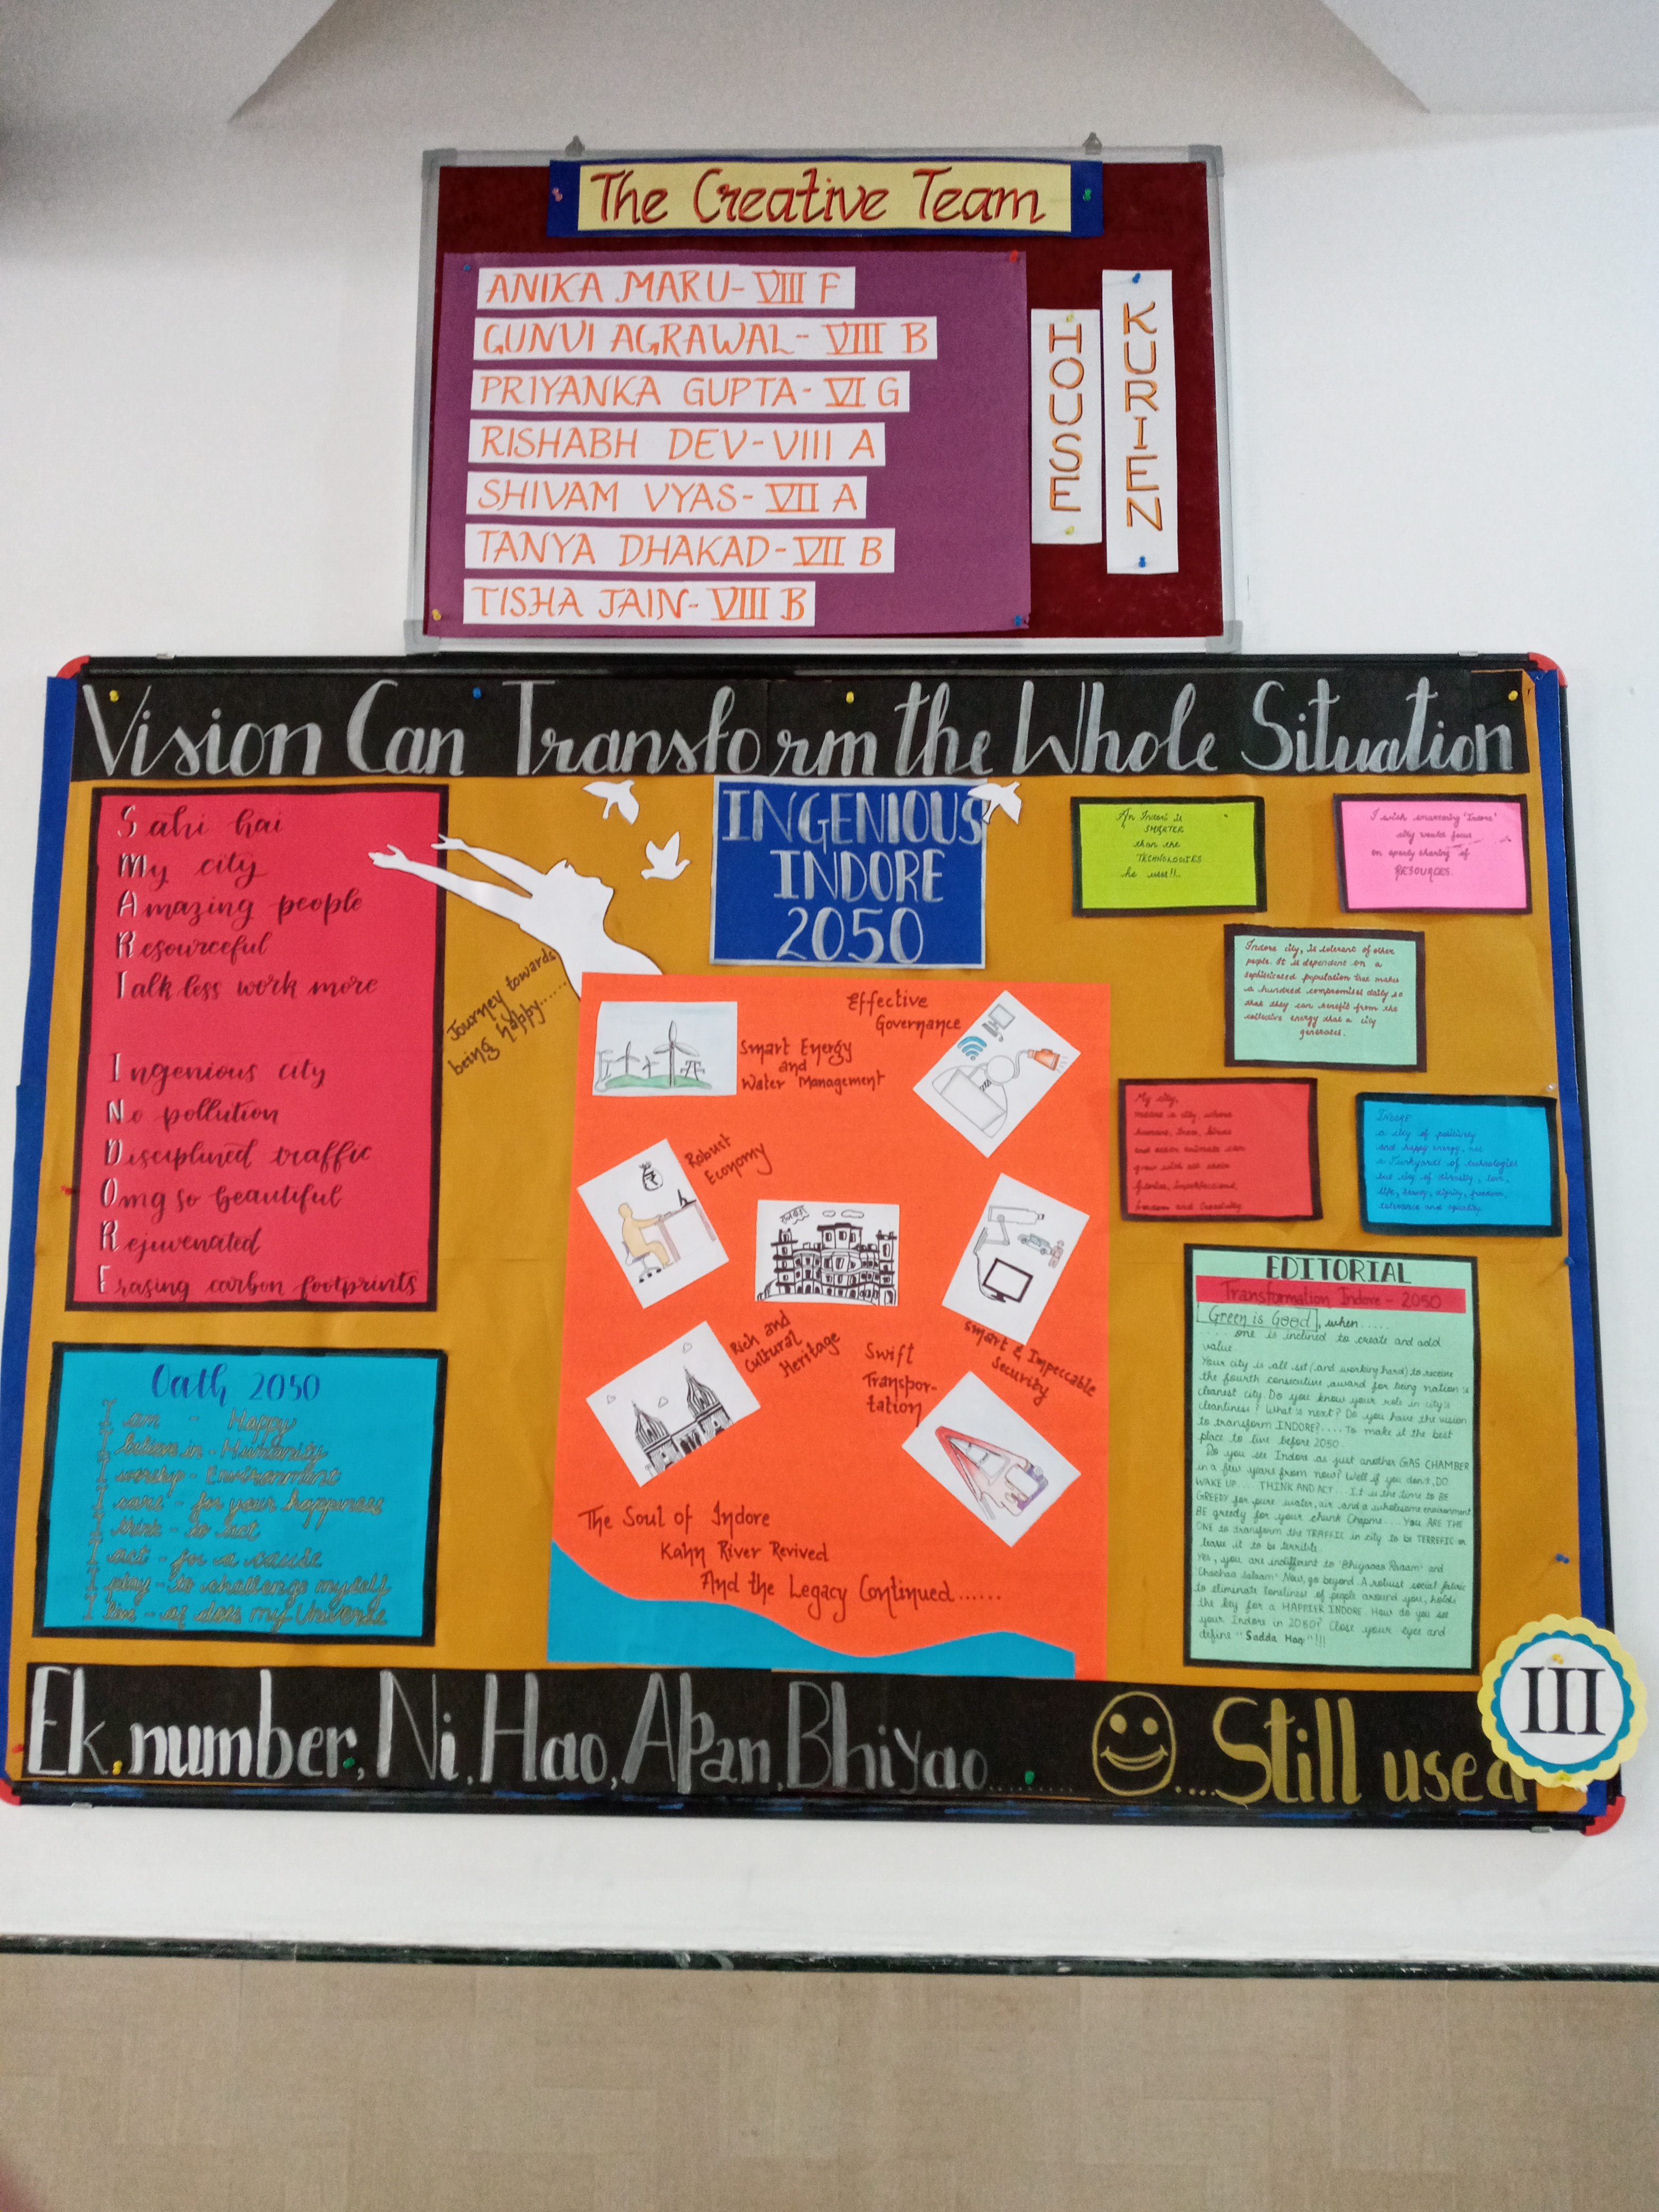 The Creative Team
ANIKA MARU- VIII F
GUNVI AGRAWAL- VIII B
PRIYANKA GUPTA- VI G
RISHABH DEV-VIII A
SHIVAM VYAS- VII A
TANYA DHAKAD-VII B
TISHA JAIN- VIII B
HOUSE
KURIEN
Vision Can Transform the Whole Situation
Sahi hai
My city
Amazing people
Resourceful
Talk less work more
Ingenious city
No pollution
Disciplined traffic
Omg so beautiful
Rejuvenated
Erasing carbon footprints
Journey towards
being happy......
INGENIOUS
INDORE
2050
An Indori is
SMARTER
than the
TECHNOLOGIES
he uses!!..
I wish 'Indore'
city would focus
on openly sharing of
RESOURCES.
Indore city, is tolerant of other
people. It is dependent on a
sophisticated population that makes
a hundred compromises daily so
that they can benefit from the
collective energy that a city
generates.
My city,
means a city where
humans, trees, birds
and other animals can
grow with all their
freedom and Creativity.
INDORE
a city of positivity
and happy energy, not
a Junkyard of technologies
but city of diversity, love,
life, beauty, dignity, freedom,
tolerance and equality.
Oath 2050
I am - Happy
I believe in - Humanity
I worship - Environment
I care - for your happiness
I think - to act
I act - for a cause
I play - to challenge myself
I live - as does my Universe
Smart Energy
and
Water Management
Effective
Governance
Robust
Economy
Rich and
Cultural
Heritage
Smart & Impeccable
Security
Swift
Transpor-
tation
The Soul of Indore
Kahn River Revived
And the Legacy Continued......
EDITORIAL
Transformation Indore - 2050
Green is Good, when.....
..... one is inclined to create and add
value
Your city is all set (and working hard) to receive
the fourth consecutive award for being nation's
cleanest city. Do you know your role in city's
cleanliness? What is next? Do you have the vision
to transform INDORE?.... To make it the best
place to live before 2050.
Do you see Indore as just another GAS CHAMBER
in a few years from now? Well if you don't, DO
WAKE UP.... THINK AND ACT... It is the time to BE
GREEDY for pure water, air and a wholesome environment
BE greedy for your Chapme.... YOU ARE THE
ONE to transform the TRAFFIC in city to be TERREFIC or
leave it to be terrible.
Yes, you are indifferent to 'Bhiyaaao Raaam' and
Chachaa Salaam' Now, go beyond. A robust social fabric
to eliminate loneliness of people around you, holds
the key for a HAPPIER INDORE. How do you see
your Indore in 2050? Close your eyes and
define "Sadda Haq"!!!
III
Ek number, Ni, Hao, APan, Bhiyao......... ....Still used